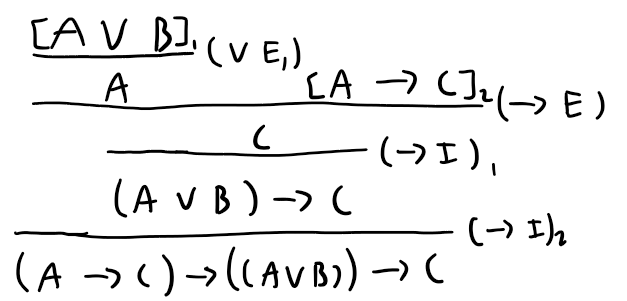 [A ∨ B]₁ (∨ E₁)
A [A → C]₂ (→ E)
C (→ I)₁
(A ∨ B) → C
(→ I)₂
(A → C) → ((A ∨ B)) → C